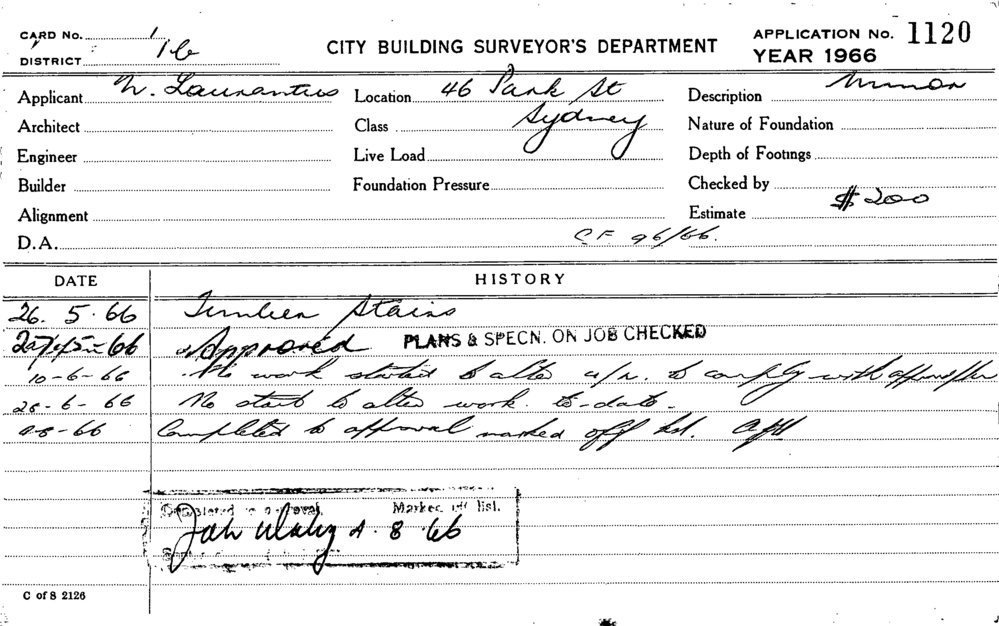 CARD No. 1
DISTRICT 1b
CITY BUILDING SURVEYOR'S DEPARTMENT
APPLICATION No. 1120
YEAR 1966
Applicant N. Laurantus Location 46 Park St Description Minor
Architect Class Sydney Nature of Foundation
Engineer Live Load Depth of Footings
Builder Foundation Pressure Checked by
Alignment Estimate $200
D.A. C.F. 96/66.
DATE HISTORY
26. 5. 66 Stairs
66 Approved PLANS & SPECN. ON JOB CHECKED
10-6-66 No work started to alter to comply with
28-6-66 No start to alter work to-date.
-8-66 Completed to approval marked off list.
Completed to approval. Marked off list.
4. 8. 66
C of S 2126